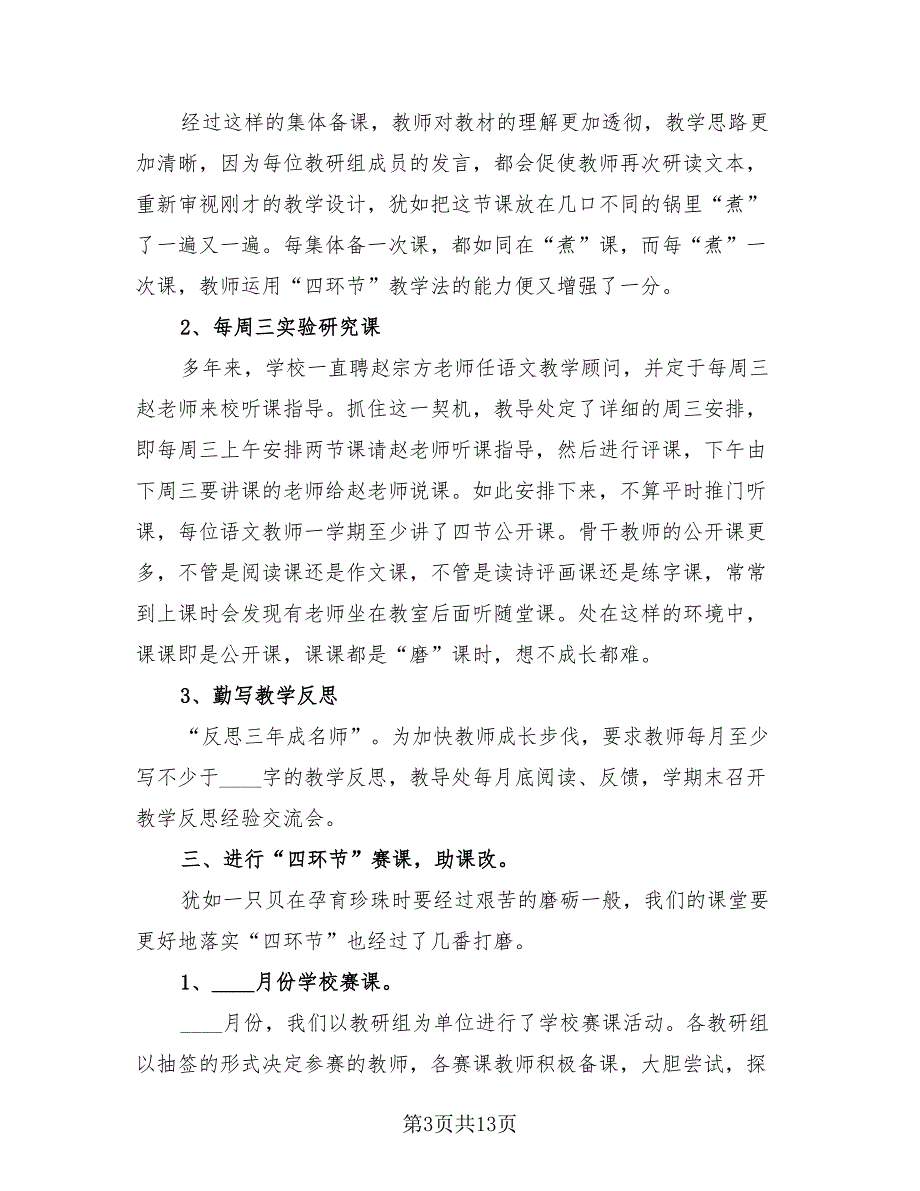 经过这样的集体备课，教师对教材的理解更加透彻，教学思路更
加清晰，因为每位教研组成员的发言，都会促使教师再次研读文本，
重新审视刚才的教学设计，犹如把这节课放在几口不同的锅里“煮”
了一遍又一遍。每集体备一次课，都如同在“煮”课，而每“煮”一
次课，教师运用“四环节”教学法的能力便又增强了一分。
2、每周三实验研究课
多年来，学校一直聘赵宗方老师任语文教学顾问，并定于每周三
赵老师来校听课指导。抓住这一契机，教导处定了详细的周三安排，
即每周三上午安排两节课请赵老师听课指导，然后进行评课，下午由
下周三要讲课的老师给赵老师说课。如此安排下来，不算平时推门听
课，每位语文教师一学期至少讲了四节公开课。骨干教师的公开课更
多，不管是阅读课还是作文课，不管是读诗评画课还是练字课，常常
到上课时会发现有老师坐在教室后面听随堂课。处在这样的环境中，
课课即是公开课，课课都是“磨”课时，想不成长都难。
3、勤写教学反思
“反思三年成名师”。为加快教师成长步伐，要求教师每月至少
写不少于____字的教学反思，教导处每月底阅读、反馈，学期末召开
教学反思经验交流会。
三、进行“四环节”赛课，助课改。
犹如一只贝在孕育珍珠时要经过艰苦的磨砺一般，我们的课堂要
更好地落实“四环节”也经过了几番打磨。
1、____月份学校赛课。
____月份，我们以教研组为单位进行了学校赛课活动。各教研组
以抽签的形式决定参赛的教师，各赛课教师积极备课，大胆尝试，探
第3页共13页